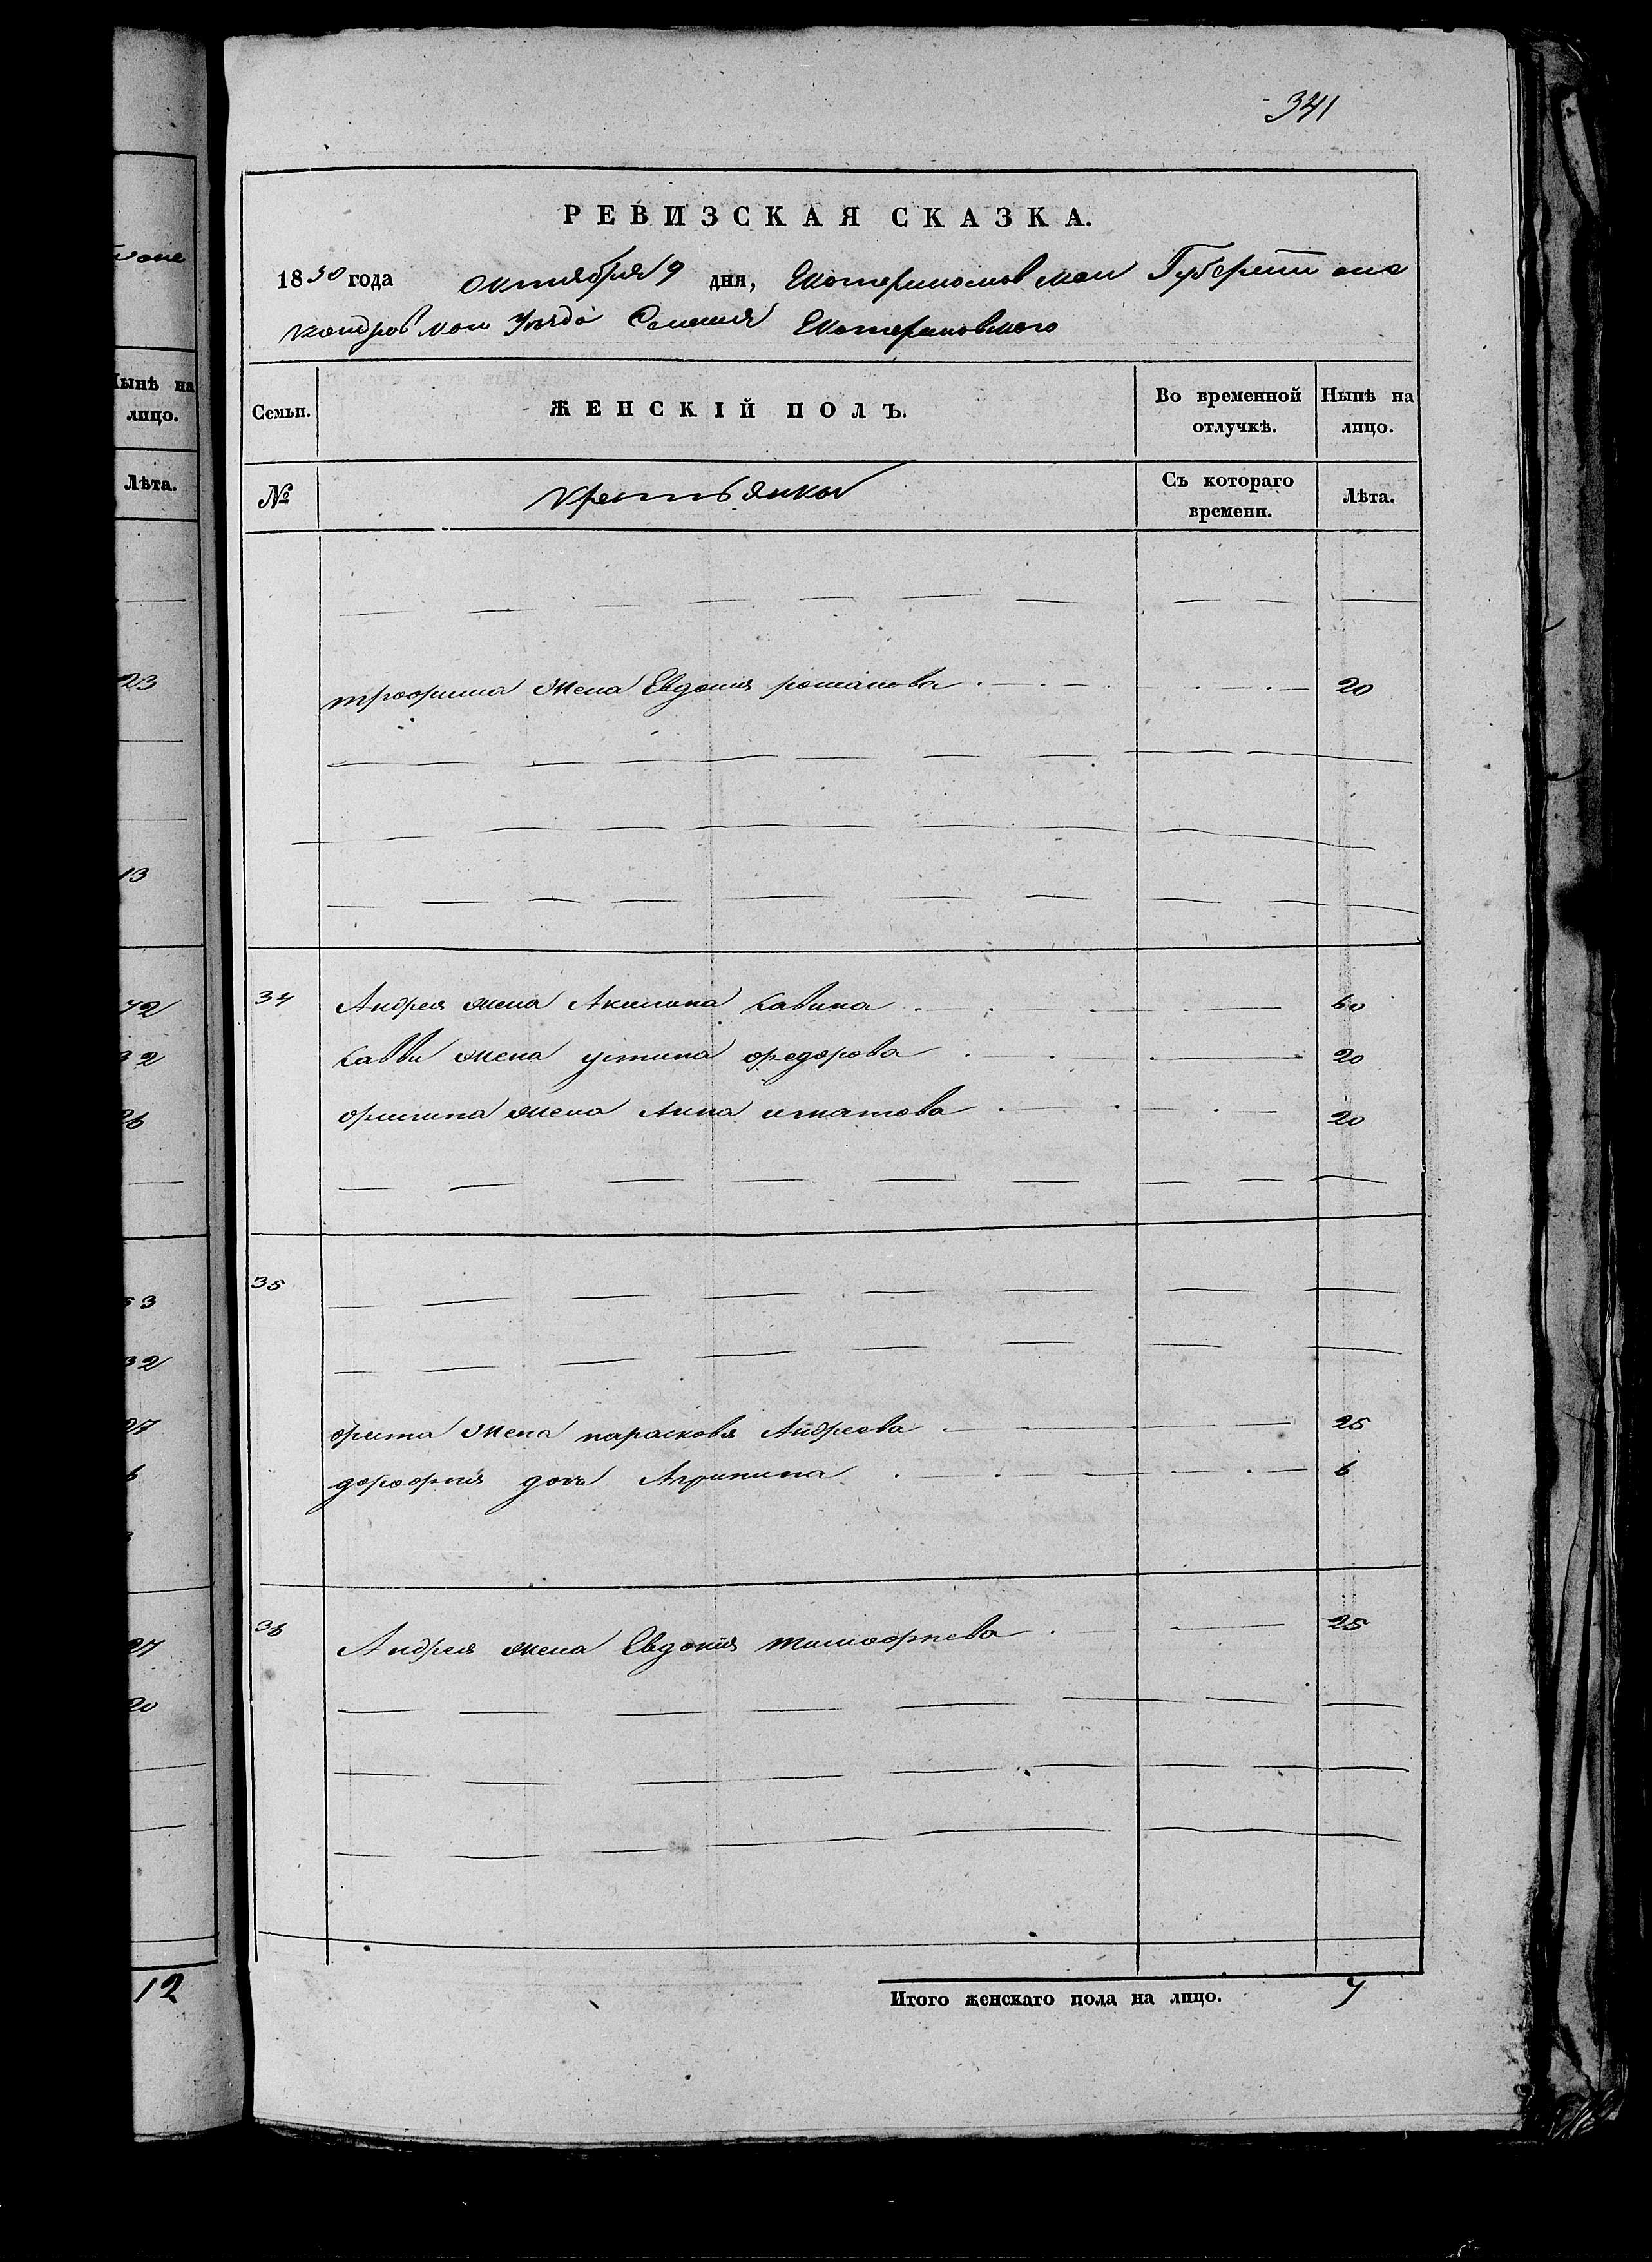 341
РЕВИЗСКАЯ СКАЗКА.
1850 года октября 9 дня, Екатеринославской Губернии але
ксандровскои Уезда Селения Екатериновкого
Семьи. ЖЕНСКІЙ ПОЛЪ. Во временной отлучкѣ. Нынѣ на лицо.
№ крестьянки Съ котораго времени. Лѣта.
трофима жена Евдокия романова 20
34 Андрея жена Акилина савина 60
савви жена устина федорова 20
филипа жена Анна игнатова 20
35
фита жена парасковя Андреева 25
дорофия доч Агрипина 6
36 Андрея жена Евдокия тимофиева 25
Итого женскаго пола на лицо. 7
Нынѣ на
лицо.
Лѣта.
23
13
72
32
26
63
32
27
6
27
20
12